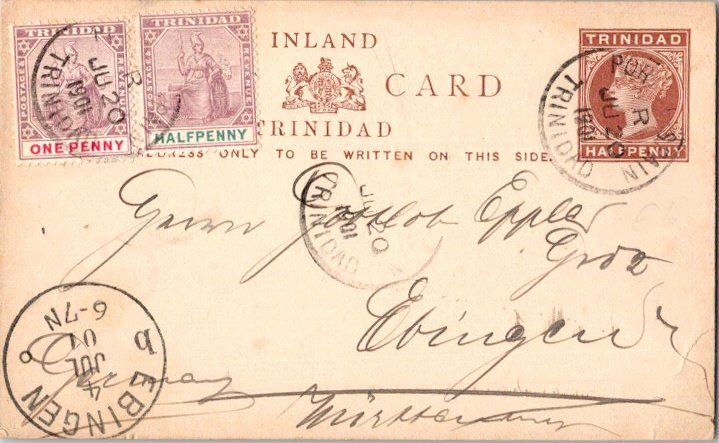 TRINIDAD
POSTAGE & REVENUE
ONE PENNY
TRINIDAD
POSTAGE & REVENUE
HALFPENNY
R
JU 20
1901
TRINIDAD
INLAND
CARD
TRINIDAD
ADDRESS ONLY TO BE WRITTEN ON THIS SIDE.
TRINIDAD
HALFPENNY
POR
R
SPAIN
JU 20
1901
TRINIDAD
JU 20
1901
TRINIDAD
Herrn Gottlob Eppler
Groz
Ebingen
Germany
Württemberg
EBINGEN
b
4
JUL
01
6-7N